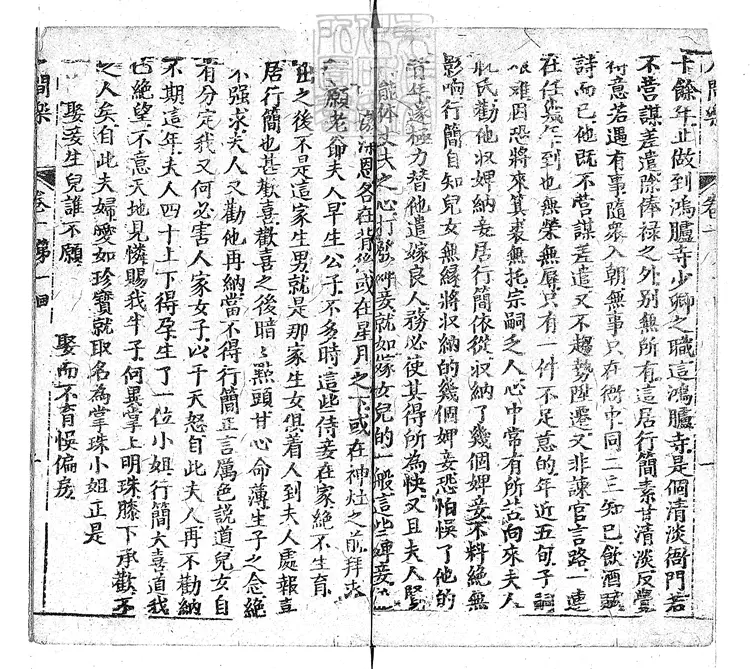 十餘年止做到鴻臚寺少卿之職這鴻臚寺是個清淡衙門若
不營謀差遣除俸祿之外別無所有這居行簡素甘清淡反覺
得意若遇有事隨眾入朝無事只在衙中同二三知己飲酒賦
詩而已他既不營謀差遣又不趨勢陞遷又非諫官言路一連
在任幾年到也無榮無辱只有一件不足意的年近五旬子嗣
艱難因恐將來箕裘無托宗嗣乏人心中常有所苦向來夫人
氏勸他收婢納妾居行簡依從收納了幾個婢妾不料絕無
影响行簡自知兒女無緣將收納的幾個婢妾恐怕悞了他的
青年遂極力替他遣嫁良人務必使其得所為快又且夫人賢
能体丈夫之心打發婢妾就如嫁女兒的一般這些婢妾
恩各在背後或在星月之下或在神灶之前拜求
願老爺夫人早生公子不多時這些侍妾在家絕不生育
出之後不是這家生男就是那家生女俱着人到夫人處報喜
居行簡也甚歡喜歡喜之後暗々點頭甘心命薄生子之念絕
不强求夫人又勸他再納當不得行簡正言厲色說道兒女自
有分定我又何必害人家女子以干天怒自此夫人再不勸納
不期這年夫人四十上下得孕生了一位小姐行簡大喜道我
已絕望不意天地見憐賜我半子何異掌上明珠膝下承歡不
之人矣自此夫婦愛如珍寶就取名為掌珠小姐正是
娶妾生兒誰不願　娶而不育悞偏房
人間樂　卷一　第一回
人間樂　卷一　一